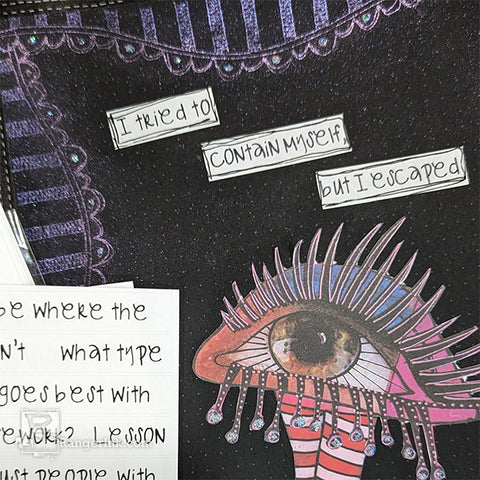 I tried to
contain myself,
but I escaped
be where the
n't what type
goes best with
ework? Lesson
ust people with